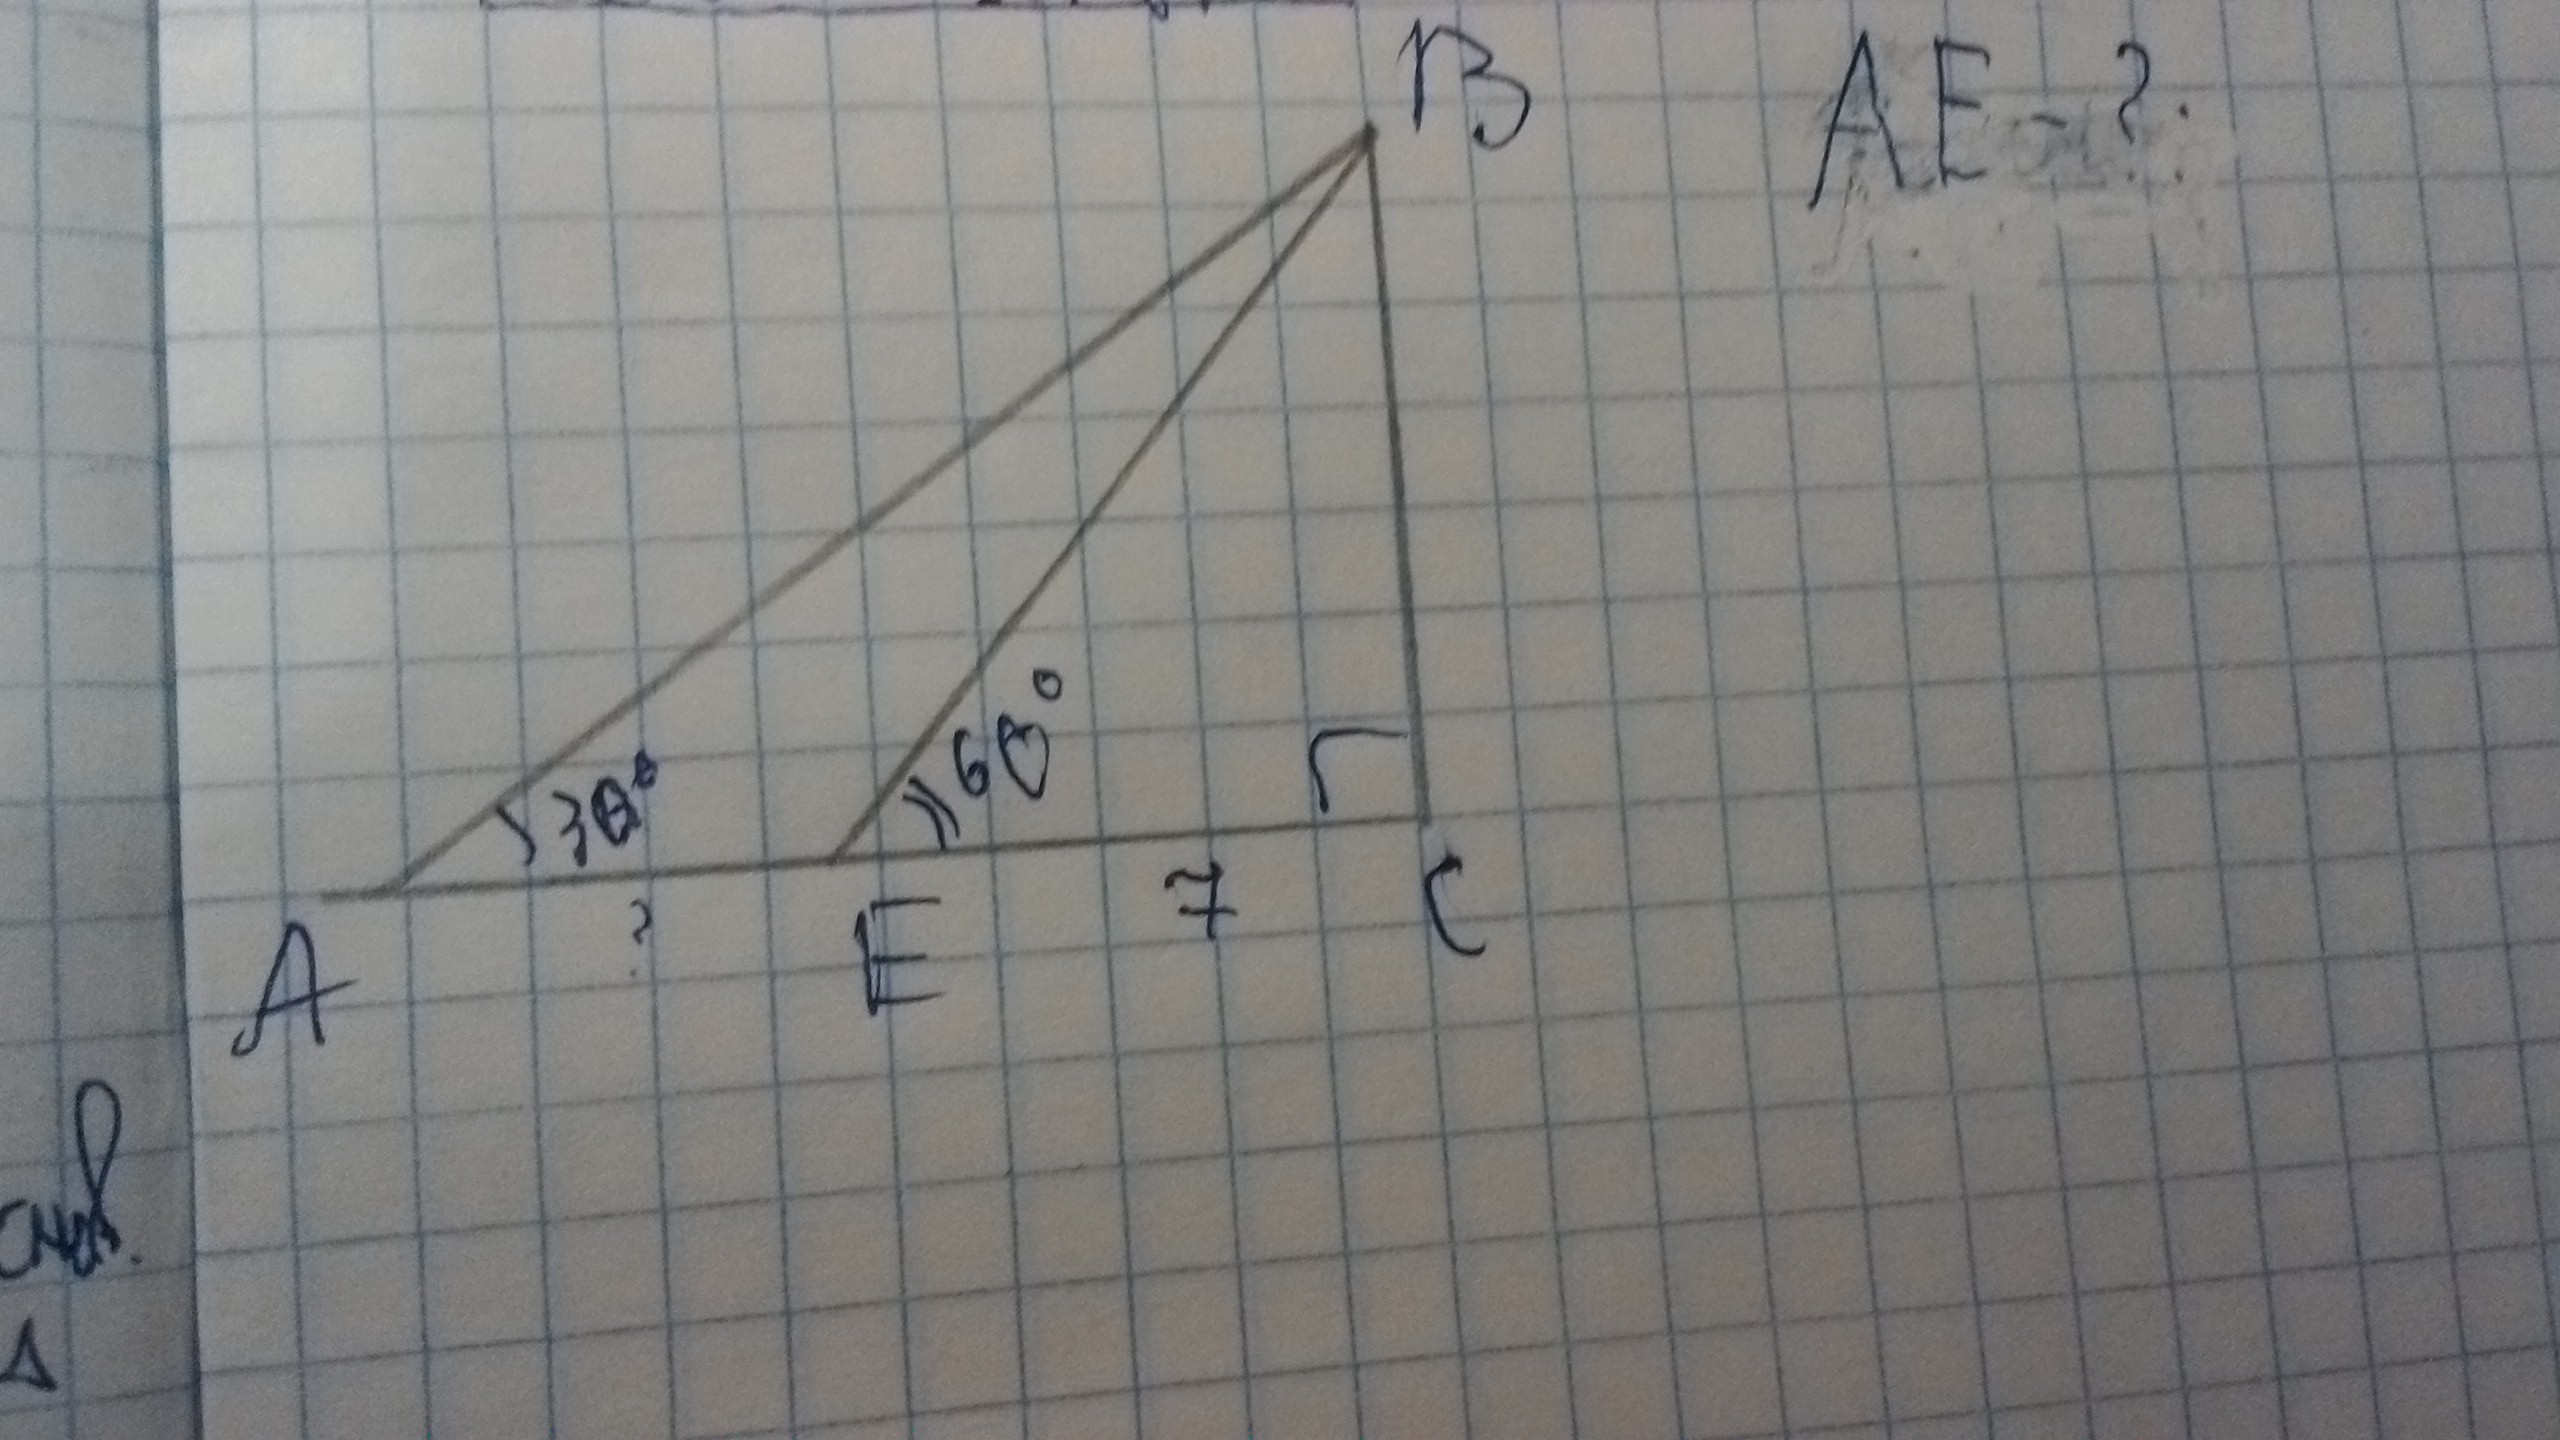 B
AE-?
30°
60°
?
7
A
E
C
Δ